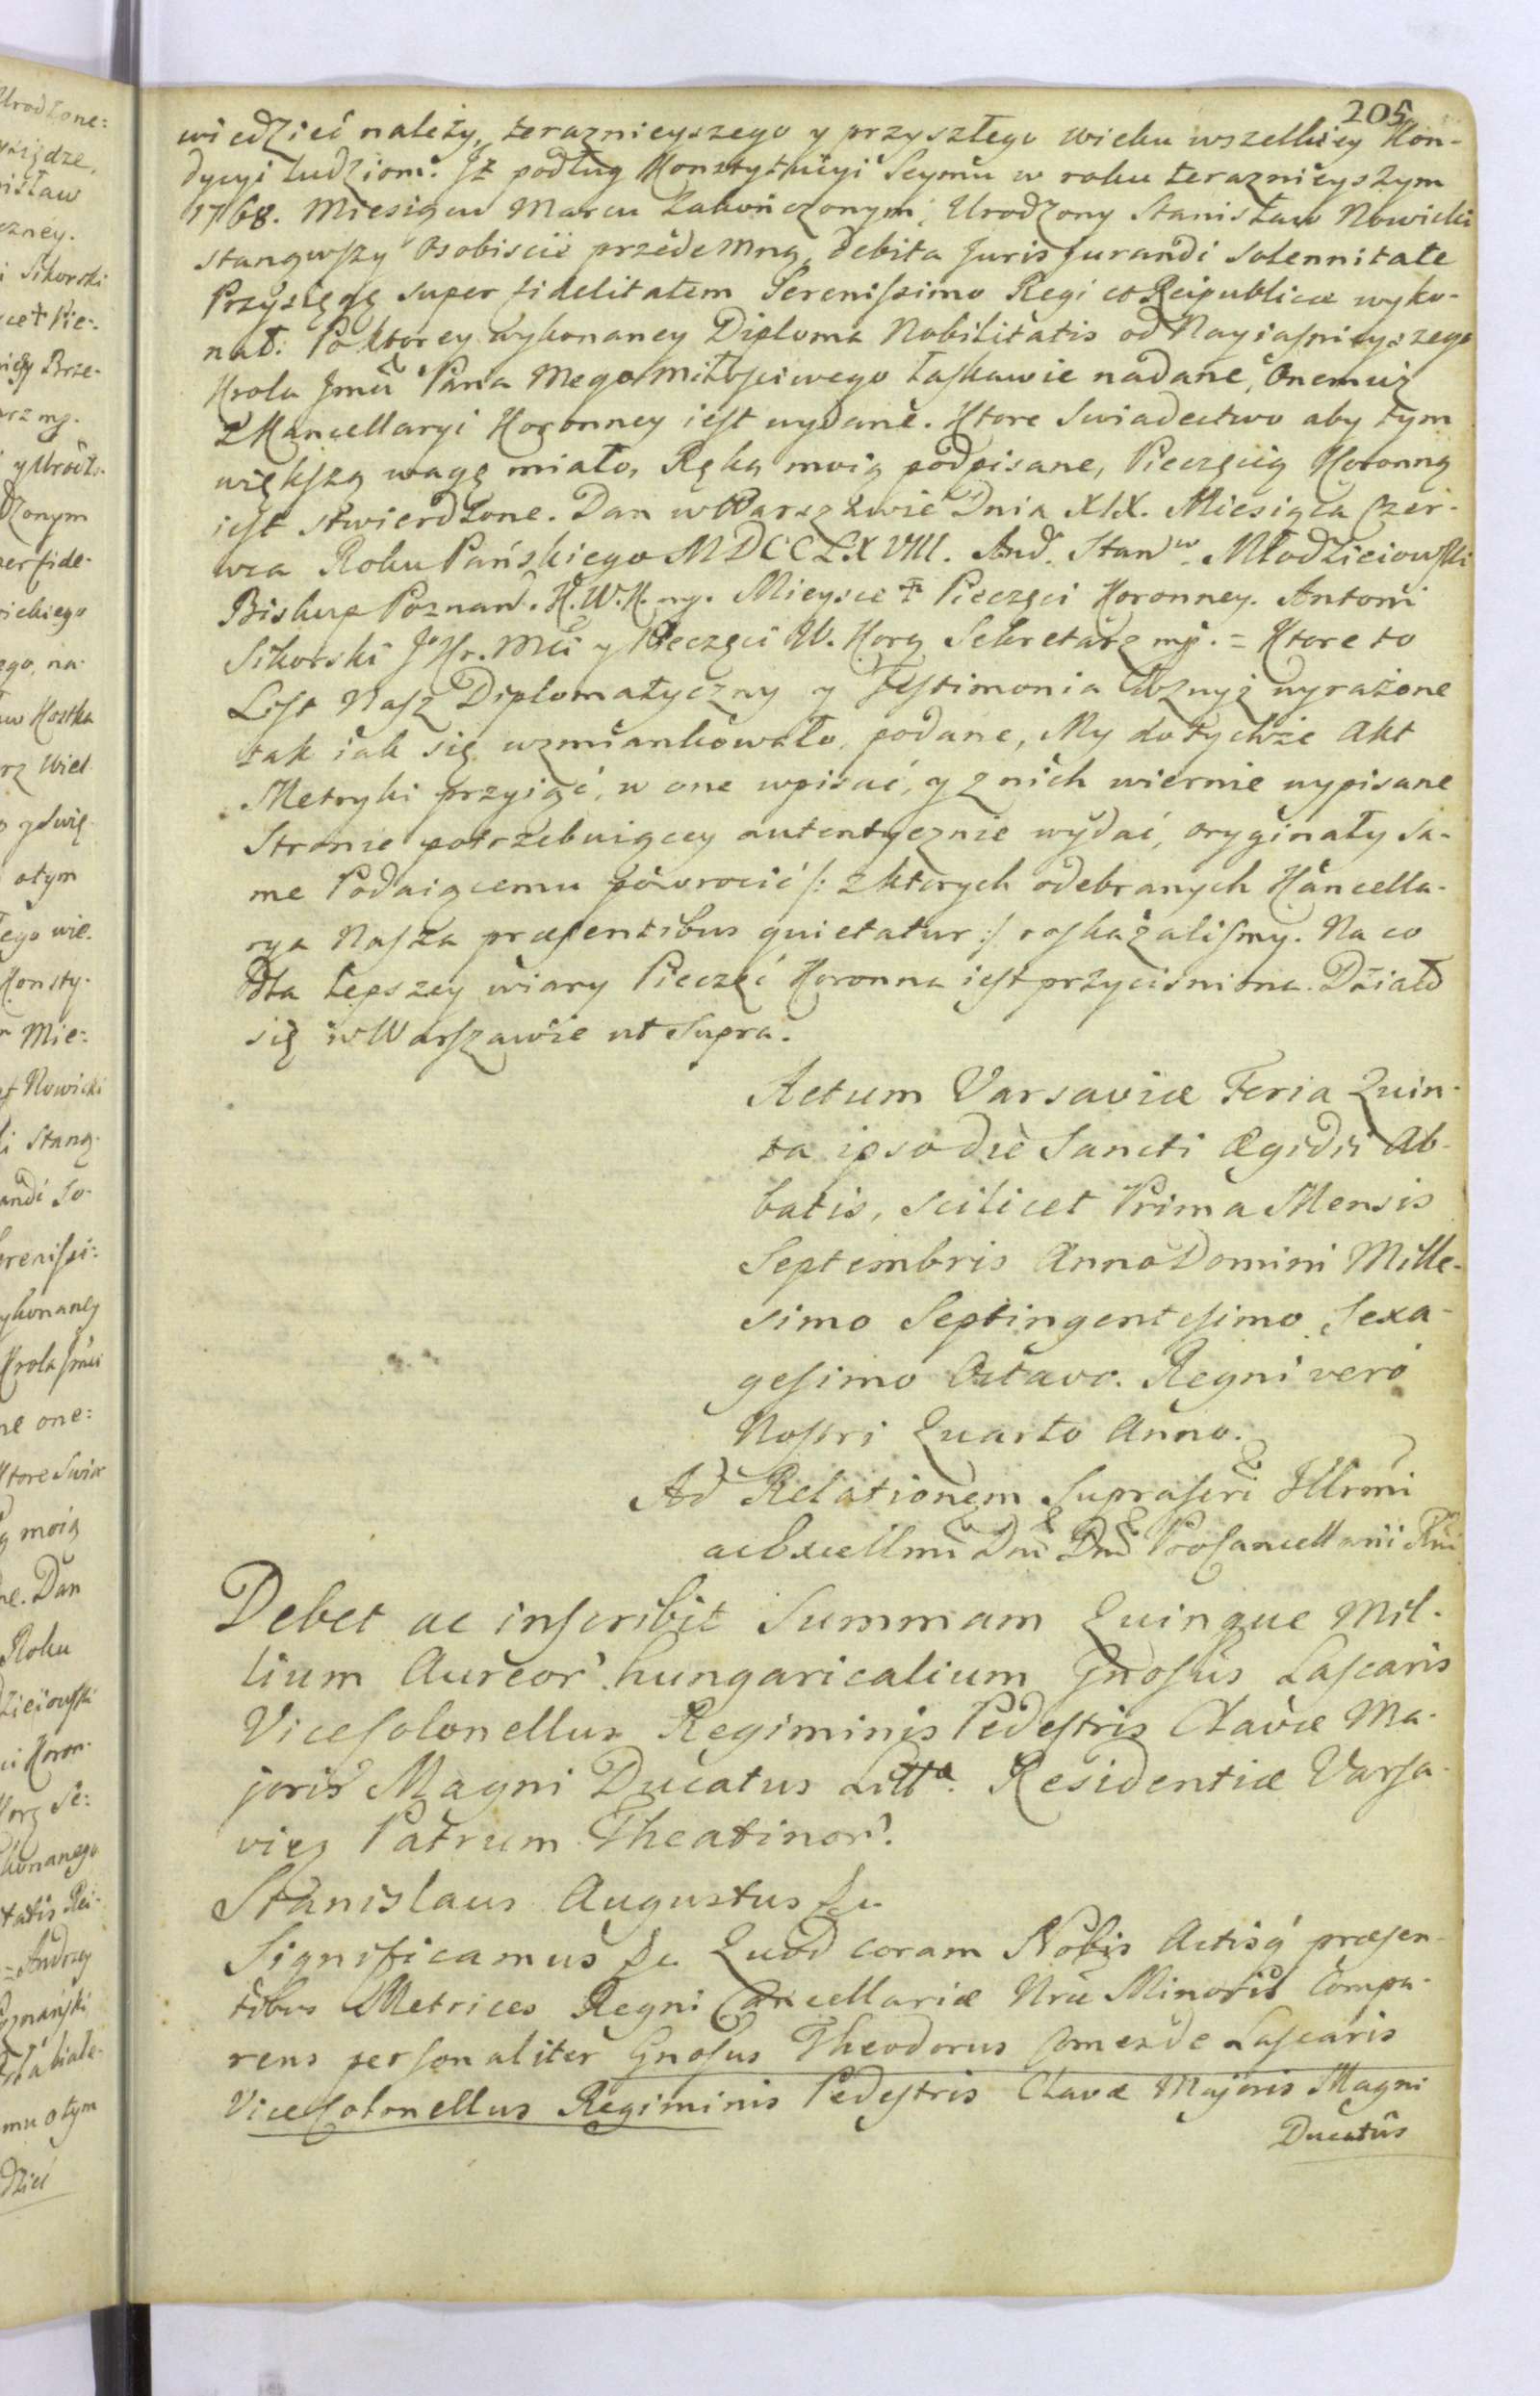 205
wiedzieć należy, teraznieyszego y przyszłego wieku wszelkiey Kon-
dycyi ludziom. Jż podług Konstytucyi Seymu w roku teraznieyszym
1768. Miesiącu Marcu zakończonym, Urodzony Stanisław Nowicki
stanąwszy osobiscie przedemną, debita Jurisjurandi solennitate
Przysięgę super fidelitatem Serenissimo Regi et Reipublicæ wyko-
nał. Po ktorey wykonaney Diploma Nobilitatis od Nayiasnieyszego
Krola Jmci Pana Mego Miłosciwego łaskawie nadane, Onemuż
z Kancellaryi Koronney iest wydane. Ktore Swiadectwo aby tym
większą wagę miało, Ręką moią podpisane, Pieczęcią Koronną
iest stwierdzone. Dan w Warszawie Dnia XIX. Miesiąca Czer-
wca Roku Pańskiego MDCCLXVIII. And. Stanw. Młodzieiowski
Biskup Poznań. K.W.K. mp. Mieysce Pieczęci Koronney. Antoni
Sikorski J. Kr. Mci y Pieczęci W. Kory Sekretarz mp. = Ktore to
List Nasz Diplomatyczny y Testimonia wyrażone
tak iak się wzmiankowało, podane, My do tychże Akt
Metryki przyiąć, w one wpisać, y z nich wiernie wypisane
Stronie potrzebuiącey autentycznie wydać, oryginały sa-
me Podaiącemu powrocić /: z ktorych odebranych Kancella-
rya Nasza præsentibus quietatur :/ roskazalismy. Na co
dla lepszey wiary Pieczęć Koronna iest przycisniona. Działo
się w Warszawie ut Supra.
Actum Varsaviæ Feria Quin-
ta ipso die Sancti Ægidii Ab-
batis, scilicet Prima Mensis
Septembris Anno Domini Mille-
simo Septingentesimo Sexa-
gesimo Octavo. Regni vero
Nostri Quarto Anno.
Ad Relationem Suprascri Illrmi
ac Excellmi Dni Dni ProCancellarii Rni
Debet ac inscribit Summam Quinque Mil-
lium Aureor. hungaricalium Gnosus Lascaris
ViceColonellus Regiminis Pedestris Clavæ Ma-
joris Magni Ducatus Litta. Residentiæ Varsa-
vien Patrum Theatinor.
Stanislaus Augustus &c
Significamus &c Quod coram Nobis Actisq præsen-
tibus Metrices Regni Cancellariæ Nræ Minoris Compa-
rens personaliter Gnosus Theodorus Comes de Lascaris
ViceColonellus Regiminis Pedestris Clavæ Majoris Magni
Ducatus